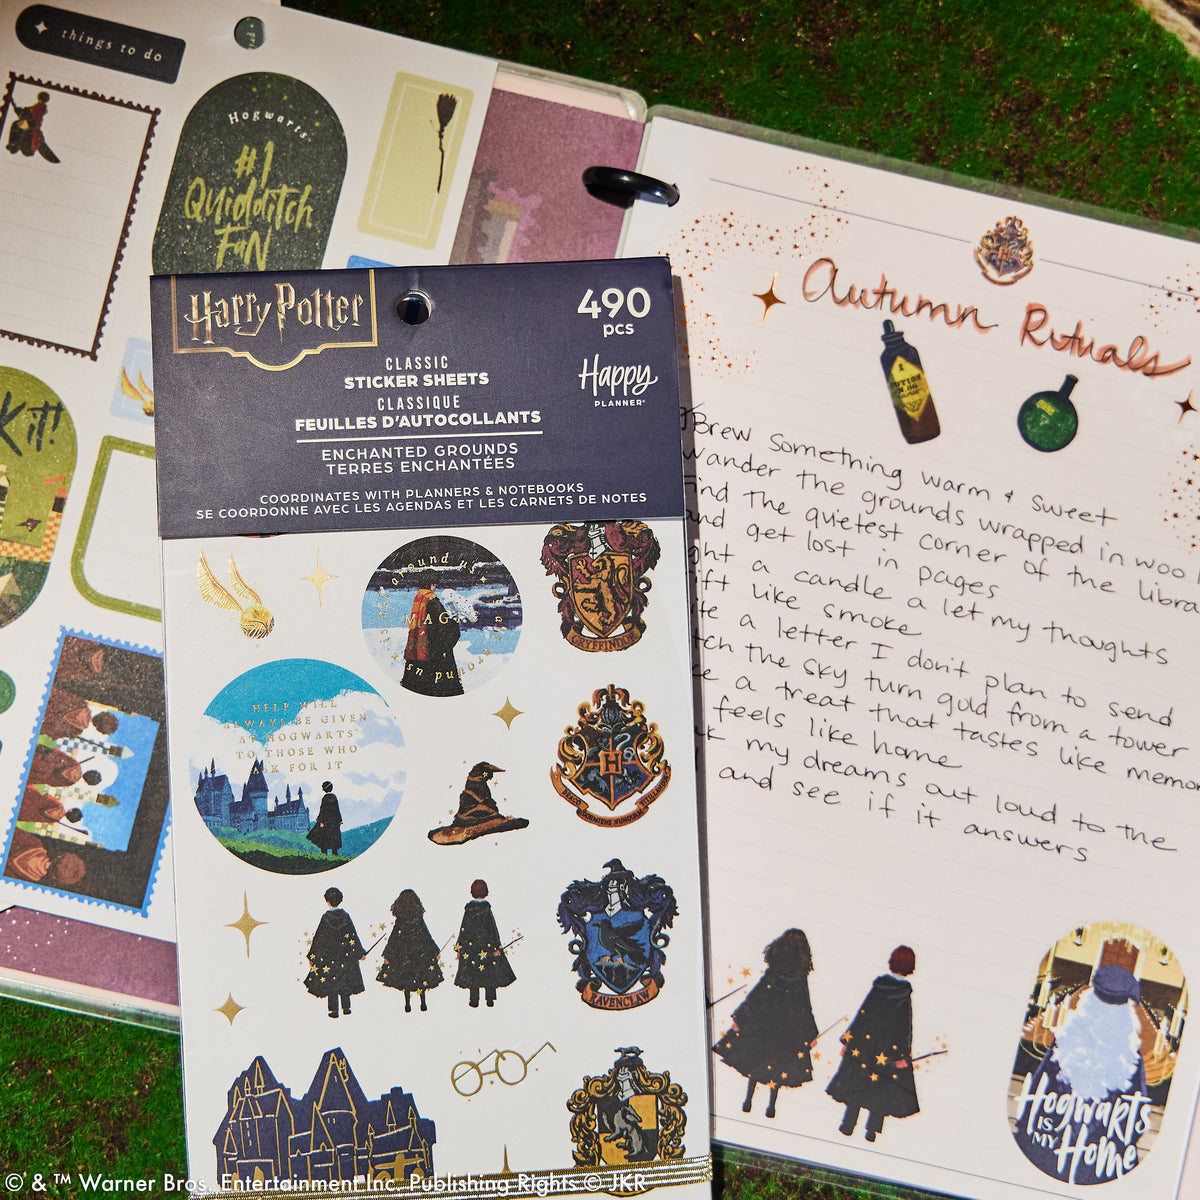 things to do
Hogwarts
#1
Quidditch
Fan
Kit!
Harry Potter
490
pcs
CLASSIC
STICKER SHEETS
CLASSIQUE
FEUILLES D'AUTOCOLLANTS
Happy
PLANNER®
ENCHANTED GROUNDS
TERRES ENCHANTÉES
COORDINATES WITH PLANNERS & NOTEBOOKS
SE COORDONNE AVEC LES AGENDAS ET LES CARNETS DE NOTES
around us
MAGIC
around us
GRYFFINDOR
HELP WILL
ALWAYS BE GIVEN
AT HOGWARTS™
TO THOSE WHO
ASK FOR IT
H
DRACO DORMIENS NUNQUAM TITILLANDUS
RAVENCLAW
Autumn Rituals
Brew something warm & sweet
wander the grounds wrapped in woo
find the quietest corner of the libra
and get lost in pages
a candle & let my thoughts
like smoke
a letter I don't plan to send
the sky turn gold from a tower
a treat that tastes like memor
feels like home
my dreams out loud to the
and see if it answers
Hogwarts
IS
MY
Home
© & ™ Warner Bros. Entertainment Inc. Publishing Rights © JKR